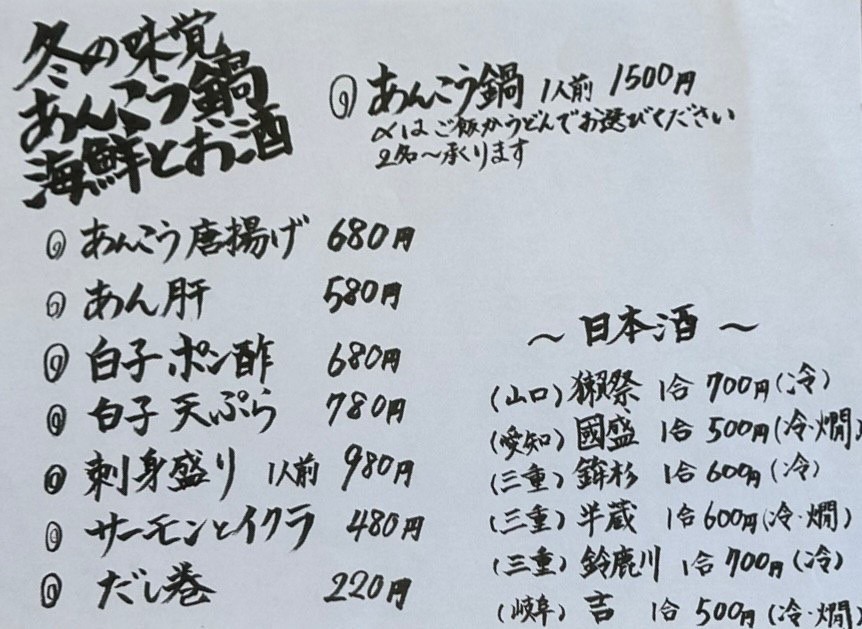 冬の味覚
あんこう鍋
海鮮とお酒
あんこう鍋 1人前 1500円
〆はご飯かうどんでお選びください
2名〜承ります
あんこう唐揚げ 680円
あん肝 580円
白子ポン酢 680円
白子天ぷら 780円
刺身盛り 1人前 980円
サーモンとイクラ 480円
だし巻 220円
〜日本酒〜
(山口) 獺祭 1合 700円(冷)
(愛知) 國盛 1合 500円(冷・燗)
(三重) 鉾杉 1合 600円(冷)
(三重) 半蔵 1合 600円(冷・燗)
(三重) 鈴鹿川 1合 700円(冷)
(岐阜) 吉 1合 500円(冷・燗)